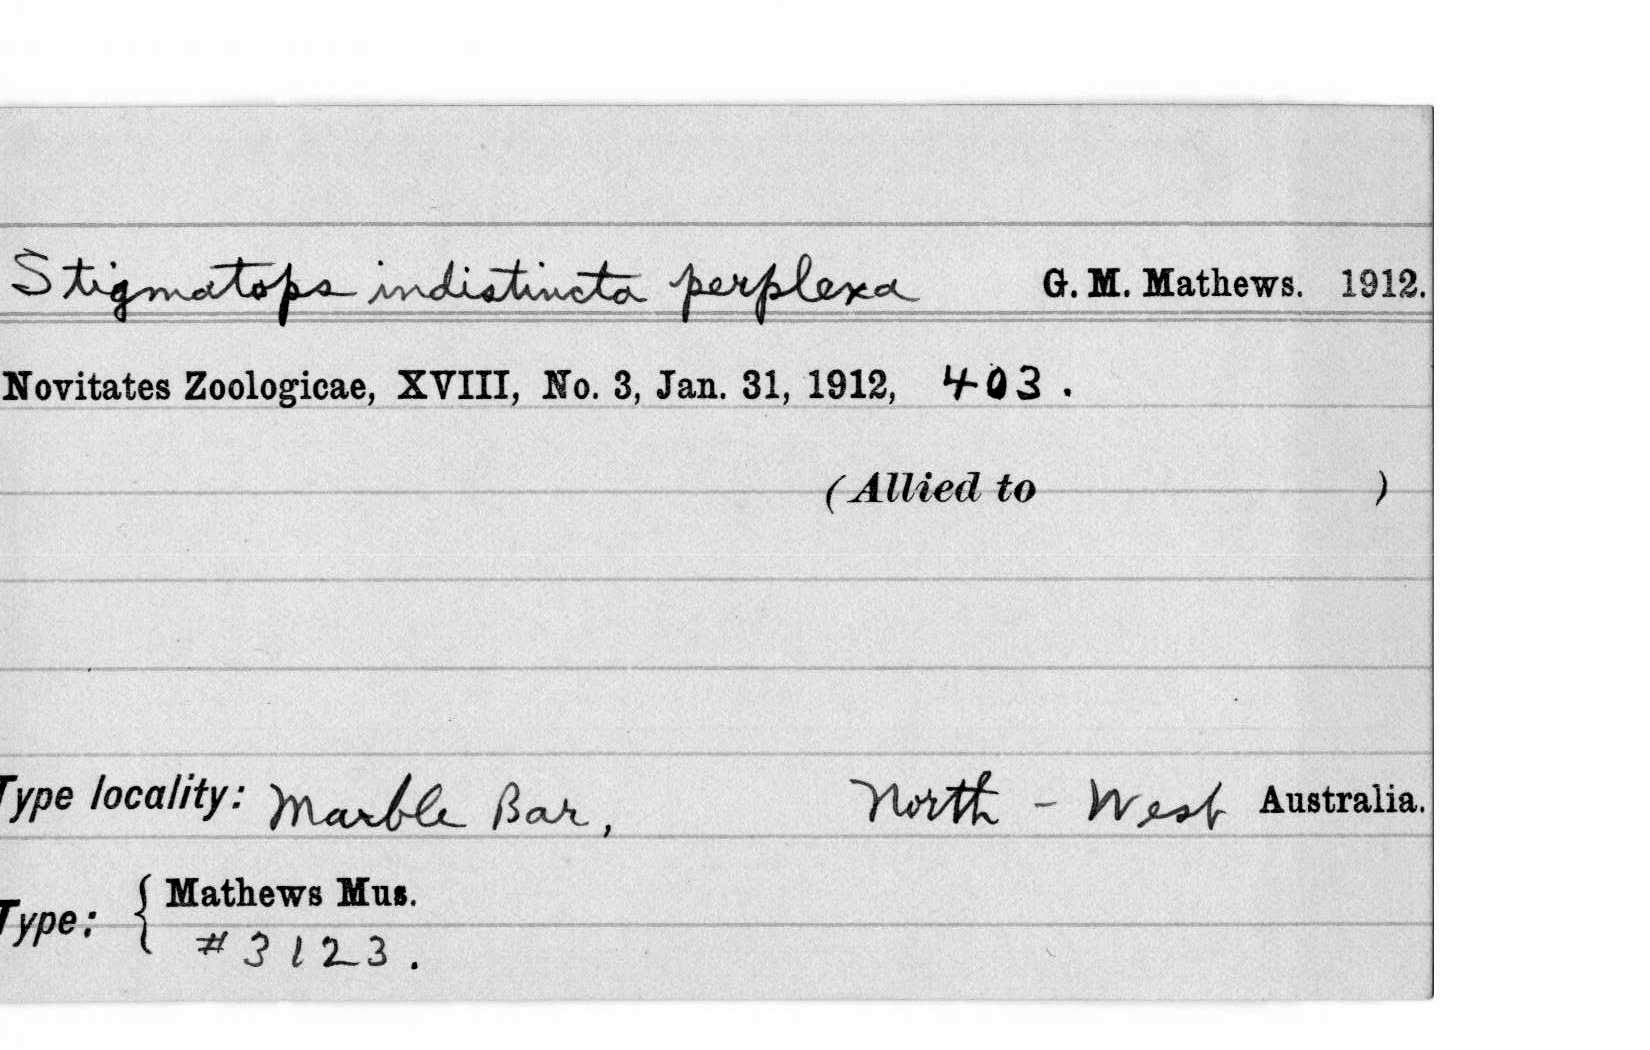 Stigmatops indistincta perplexa G. M. Mathews. 1912.
Novitates Zoologicae, XVIII, No. 3, Jan. 31, 1912, 403.
(Allied to )
Type locality: Marble Bar, North-West Australia.
Type: { Mathews Mus.
#3123.